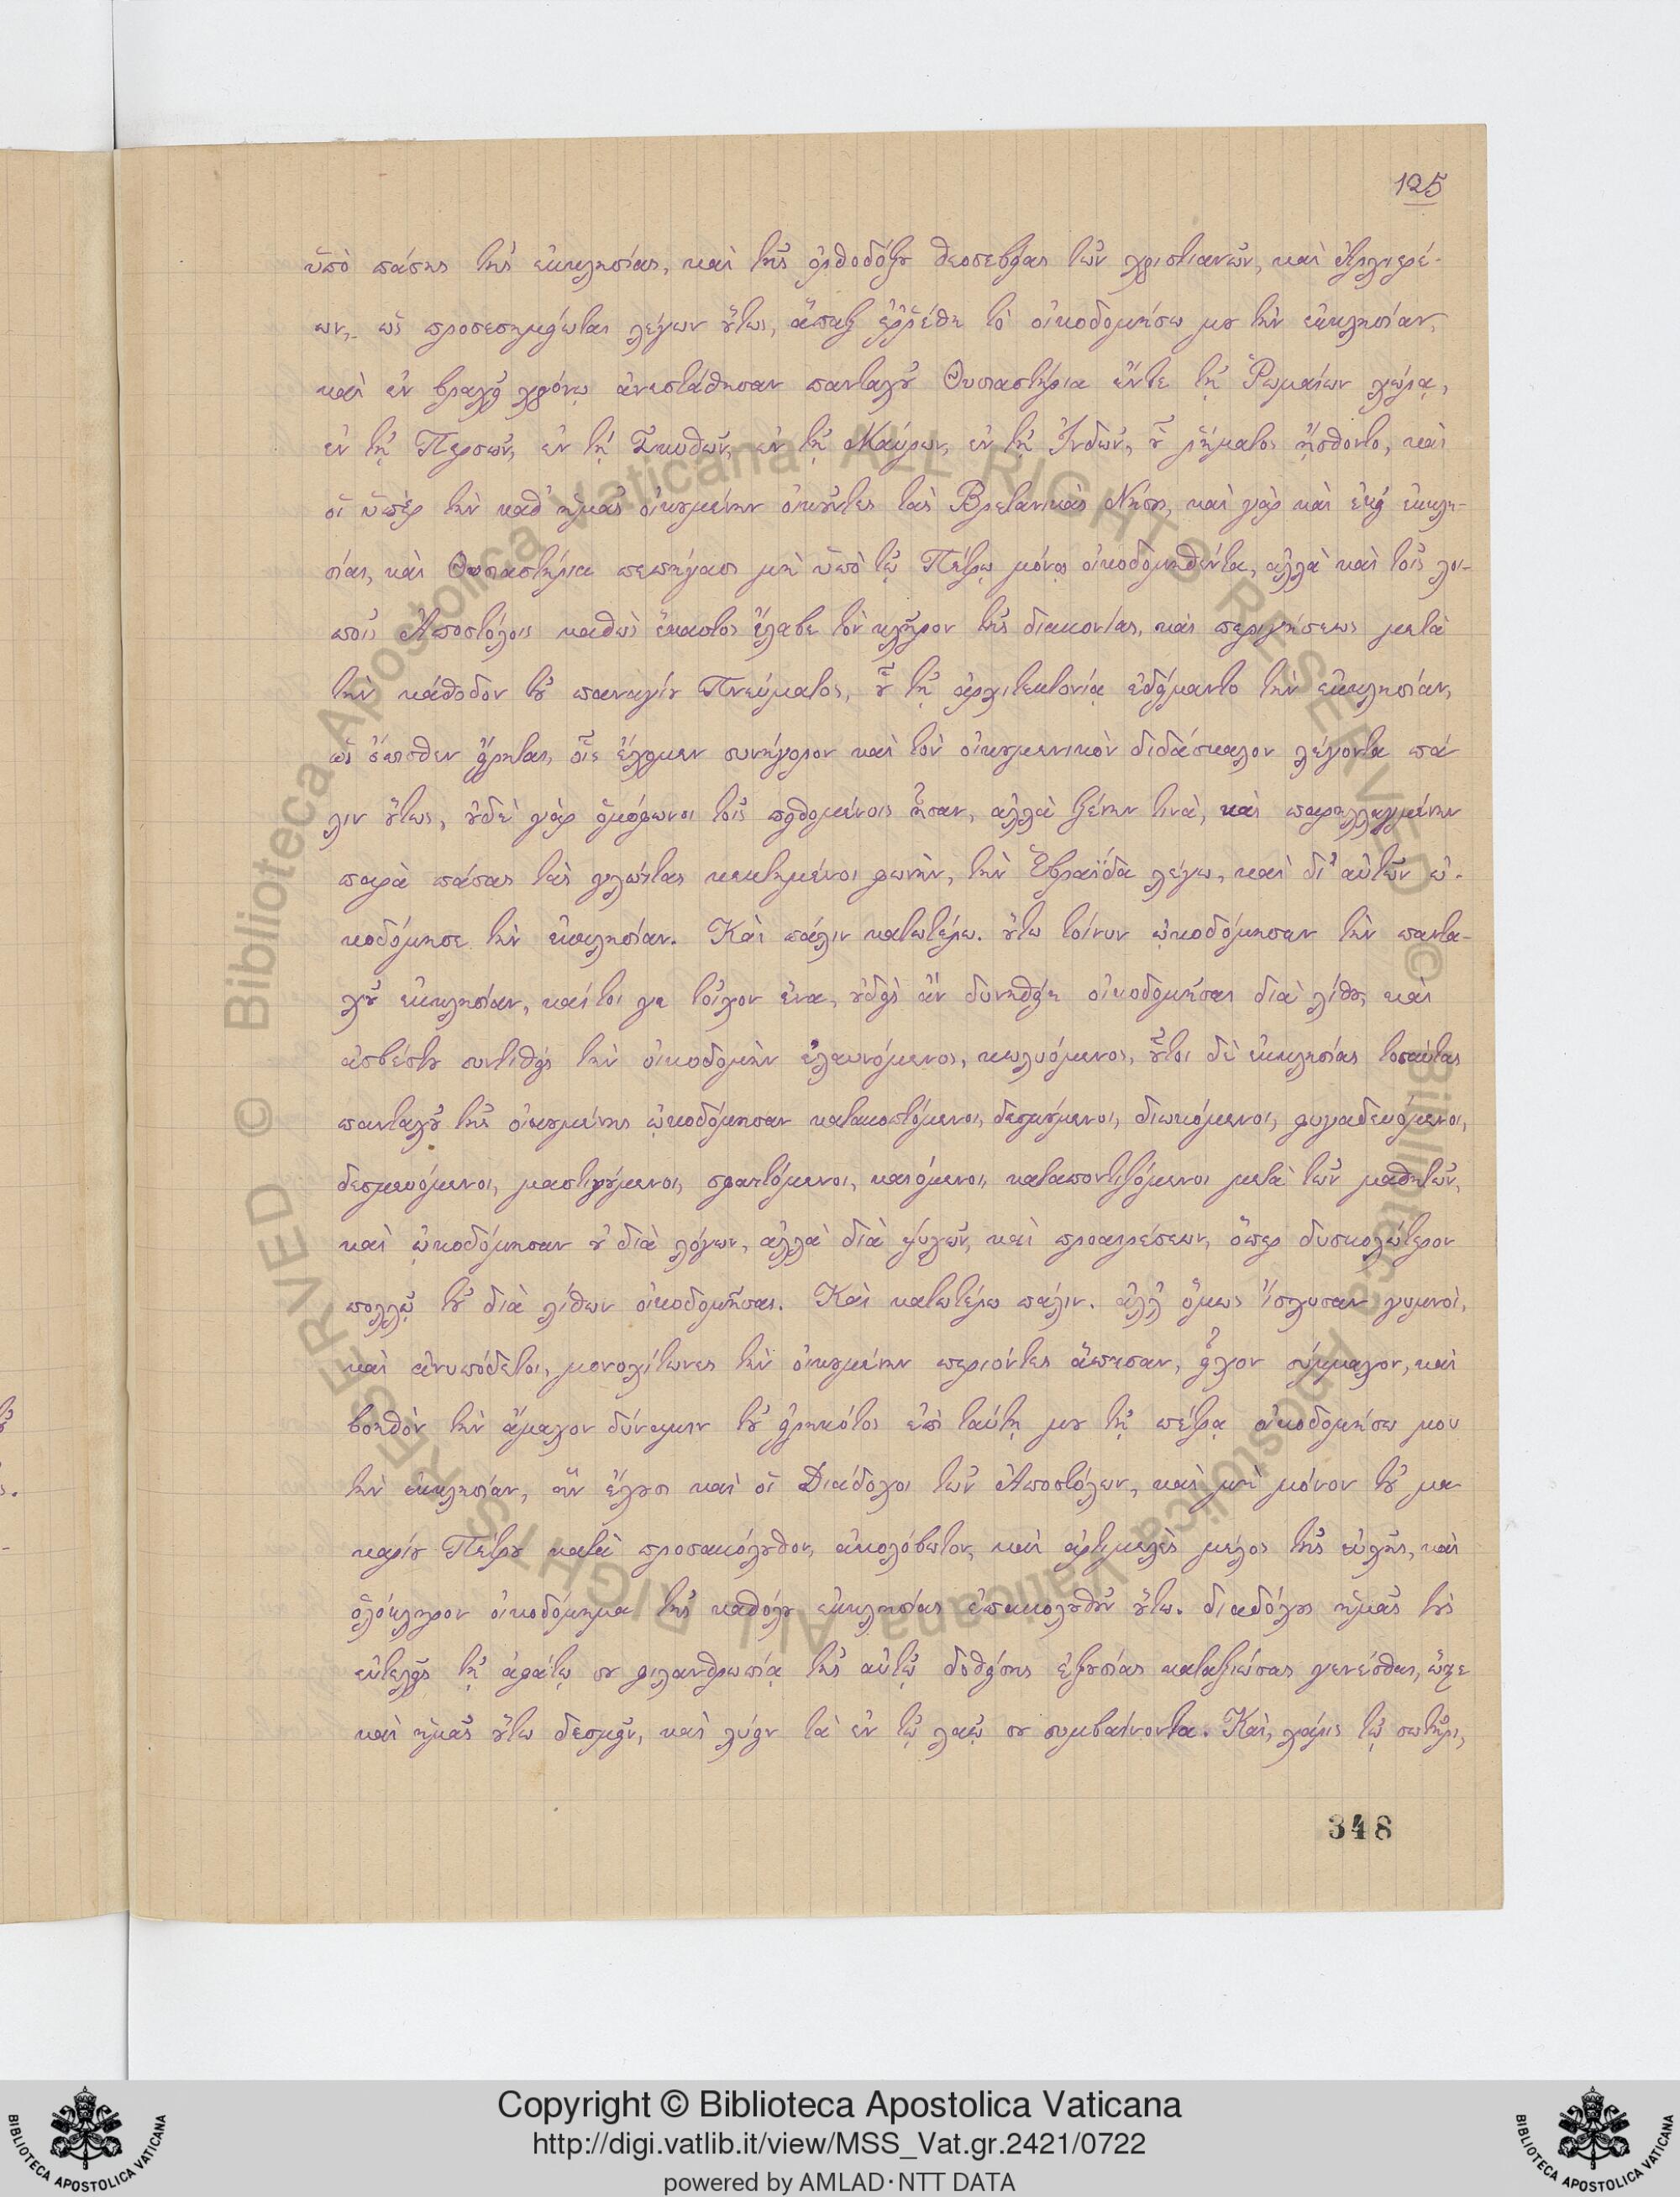 125
ὑπὸ πάσης τῆς ἐκκλησίας, καὶ τῆς ὀρθοδόξου θεοσεβείας τῶν χριστιανῶν, καὶ Ἀρχιερέ-
ων, ὡς προσεσημείωται λέγων οὕτως, ἅπαξ ἐῤῥέθη τὸ οἰκοδομήσω μου τὴν ἐκκλησίαν,
καὶ ἐν βραχεῖ χρόνῳ ἀνεστάθησαν πανταχοῦ Θυσιαστήρια ἔντε τῇ Ῥωμαίων χώρᾳ,
ἐν τῇ Περσῶν, ἐν τῇ Σκυθῶν, ἐν τῇ Μαύρων, ἐν τῇ Ἰνδῶν, οὗ ῥήματος ᾔσθοντο, καὶ
οἱ ὑπὲρ τὴν καθ' ἡμᾶς οἰκουμένην οἰκοῦντες τὰς Βρετανικὰς Νήσους, καὶ γὰρ καὶ ἐκεῖ ἐκκλη-
σίαι, καὶ Θυσιαστήρια πεπήγασι μὴ ὑπὸ τῷ Πέτρῳ μόνῳ οἰκοδομηθέντα, ἀλλὰ καὶ τοῖς λοι-
ποῖς Ἀποστόλοις καθὼς ἕκαστος ἔλαβε τὸν κλῆρον τῆς διακονίας, καὶ περιηγήσεως μετὰ
τὴν κάθοδον τοῦ παναγίου Πνεύματος, οὗ τῇ ἀρχιτεκτονίᾳ ἐδείμαντο τὴν ἐκκλησίαν,
ὡς ὄπισθεν εἴρηται, οἷς ἔχομεν συνήγορον καὶ τὸν οἰκουμενικὸν διδάσκαλον λέγοντα πά-
λιν οὕτως, οὐδὲ γὰρ ὁμόφωνοι τοῖς πειθομένοις ἦσαν, ἀλλὰ ξένην τινὰ, καὶ παρηλλαγμένην
παρὰ πάσας τὰς γλώττας κεκτημένοι φωνὴν, τὴν Ἑβραΐδα λέγω, καὶ δι' αὐτῶν ᾠ-
κοδόμησε τὴν ἐκκλησίαν. Καὶ πάλιν κατωτέρω. οὕτω τοίνυν ᾠκοδόμησαν τὴν παντα-
χοῦ ἐκκλησίαν, καίτοι γε τοῖχον ἕνα, οὐδεὶς ἂν δυνηθείη οἰκοδομῆσαι διὰ λίθου, καὶ
ἀσβέστου συντιθεὶς τὴν οἰκοδομὴν ἐλαυνόμενος, κωλυόμενος, οὗτοι δὲ ἐκκλησίας τοσαύτας
πανταχοῦ τῆς οἰκουμένης ᾠκοδόμησαν κατακοπτόμενοι, δεσμούμενοι, διωκόμενοι, φυγαδευόμενοι,
δεσμευόμενοι, μαστιγούμενοι, σφαττόμενοι, καιόμενοι, καταποντιζόμενοι μετὰ τῶν μαθητῶν,
καὶ ᾠκοδόμησαν οὐ διὰ λόγων, ἀλλὰ διὰ ψυχῶν, καὶ προαιρέσεων, ὅπερ δυσκολώτερον
πολλῷ τοῦ διὰ λίθων οἰκοδομῆσαι. Καὶ κατωτέρω πάλιν. ἀλλ' ὅμως ἴσχυσαν γυμνοὶ,
καὶ ἀνυπόδετοι, μονοχίτωνες τὴν οἰκουμένην περιιόντες ἅπασαν, εἶχον σύμμαχον, καὶ
βοηθὸν τὴν ἄμαχον δύναμιν τοῦ εἰρηκότος ἐπὶ ταύτῃ μου τῇ πέτρᾳ οἰκοδομήσω μου
τὴν ἐκκλησίαν, ἣν ἔχουσι καὶ οἱ Διάδοχοι τῶν Ἀποστόλων, καὶ μὴ μόνον τοῦ μα-
καρίου Πέτρου κατὰ προσακόλουθον, ἀκολόβωτον, καὶ ἀρτιμελὲς μέλος τῆς εὐχῆς, καὶ
ὁλόκληρον οἰκοδόμημα τῆς καθόλου ἐκκλησίας ἐπακολουθοῦν οὕτω. διαδόχους ἡμᾶς τοὺς
εὐτελεῖς τῇ ἀφάτῳ σου φιλανθρωπίᾳ τῆς αὐτῷ δοθείσης ἐξουσίας καταξιώσας γενέσθαι, ὥστε
καὶ ἡμᾶς οὕτω δεσμεῖν, καὶ λύειν τὰ ἐν τῷ λαῷ σου συμβαίνοντα. Καὶ, χάρις τῷ σωτῆρι,
348
Copyright © Biblioteca Apostolica Vaticana
http://digi.vatlib.it/view/MSS_Vat.gr.2421/0722
powered by AMLAD·NTT DATA
BIBLIOTECA APOSTOLICA VATICANA
BIBLIOTECA APOSTOLICA VATICANA
© Biblioteca Apostolica Vaticana ALL RIGHTS RESERVED
© Biblioteca Apostolica Vaticana ALL RIGHTS RESERVED